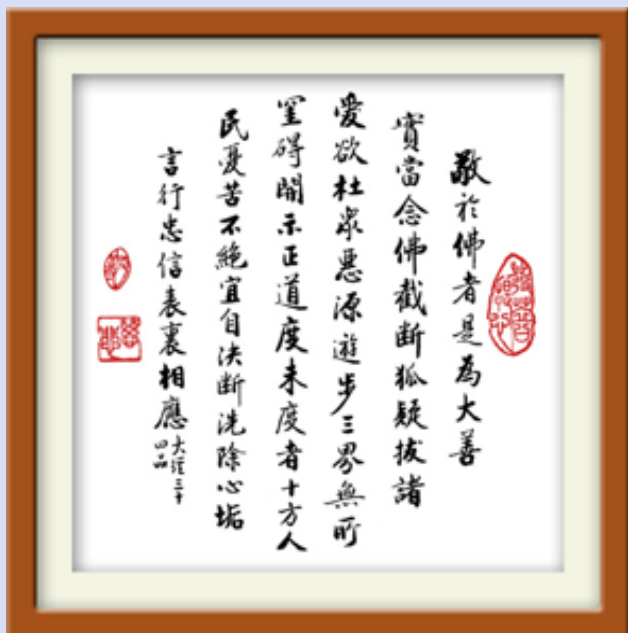 敬於佛者是為大善
實當念佛截斷狐疑拔諸
愛欲杜眾惡源遊步三界無所
罣碍開示正道度未度者十方人
民憂苦不絕宜自決斷洗除心垢
言行忠信表裏相應
大經三十
四品